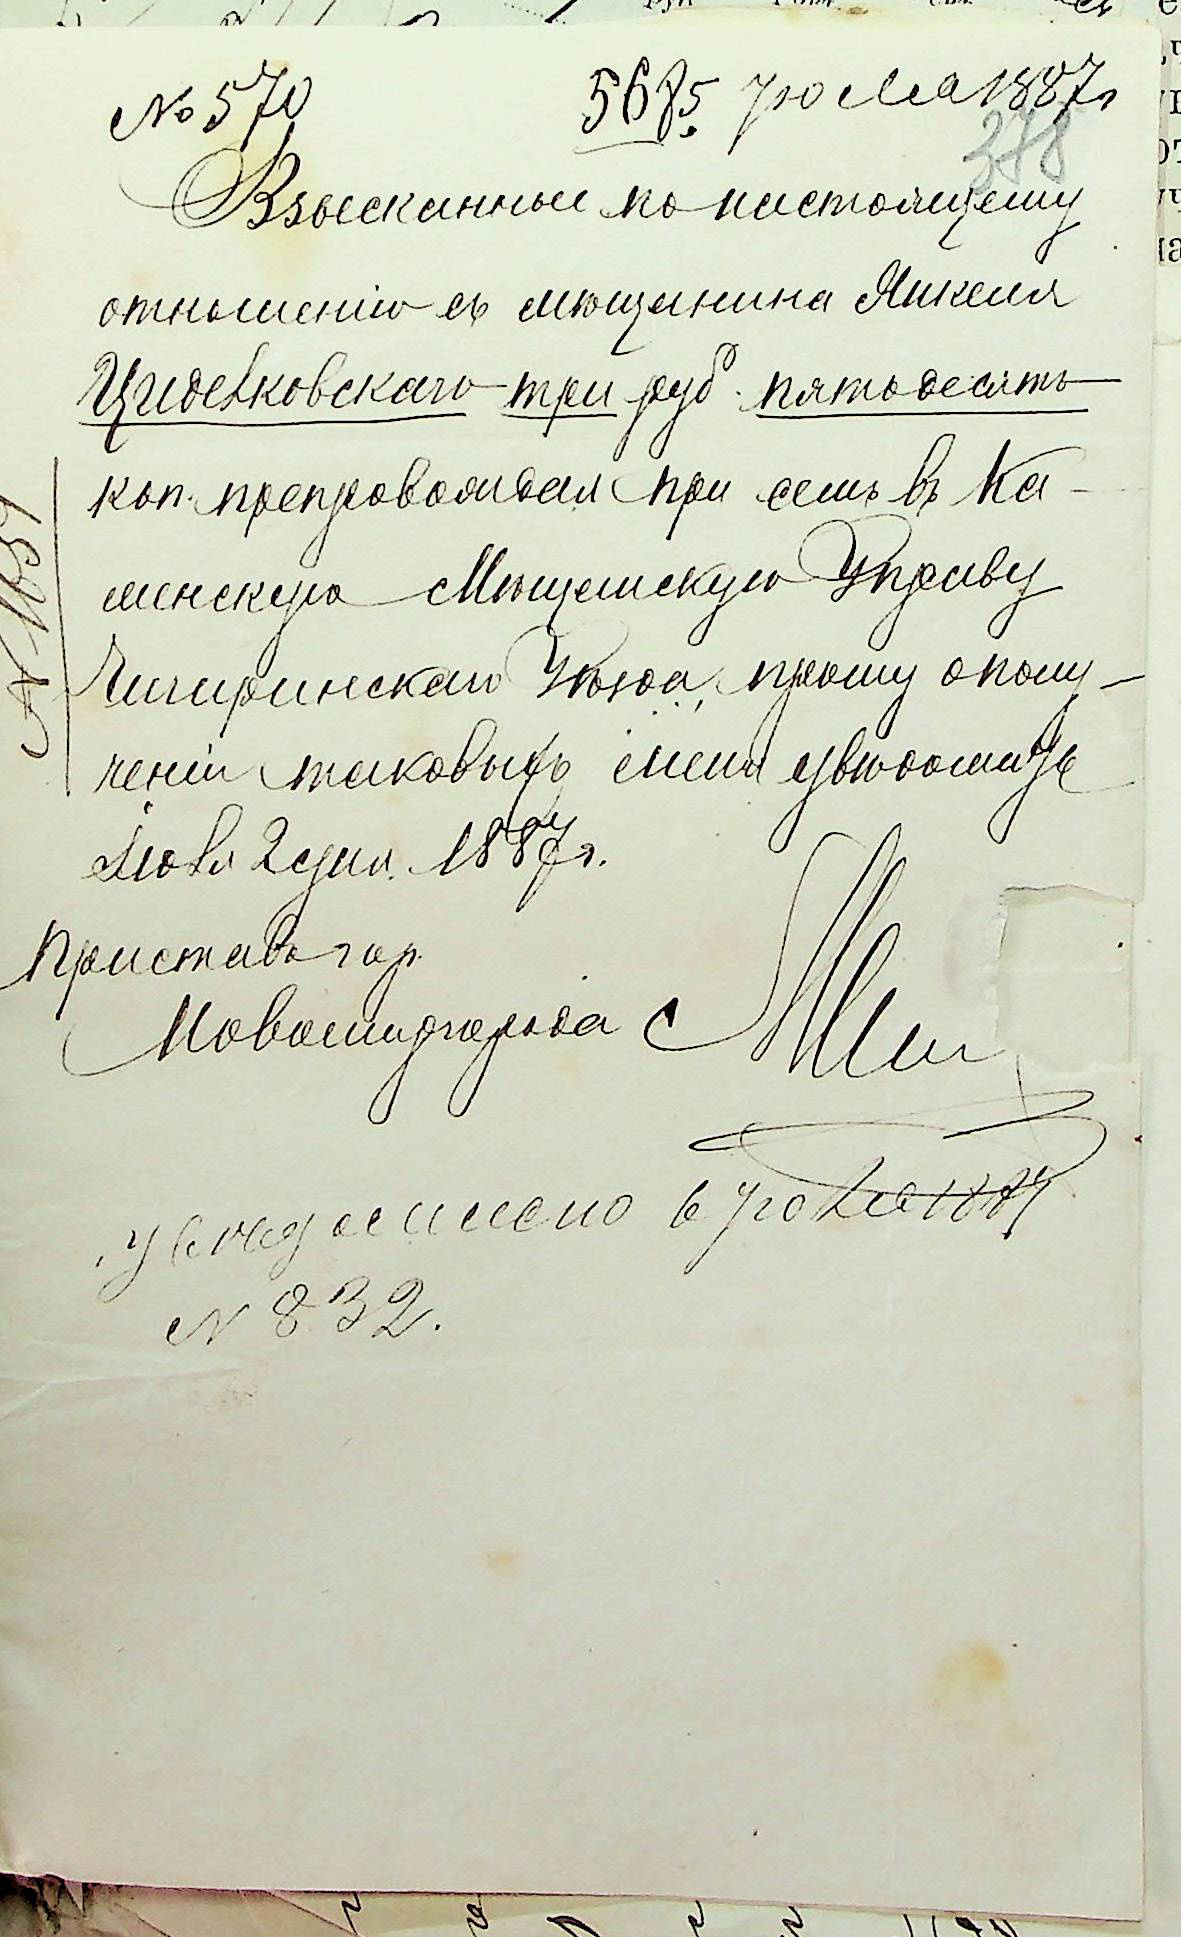 № 570 5685 7го Мая 1887 г
378
Взысканные по настоящему
отношенію съ мѣщанина Янкеля
Цидековскаго три руб. пятьдесять
коп. препровождая при семъ въ Ка-
менскую Мѣщанскую Управу
Чигиринскаго Уѣзда, прошу о полу-
ченіи таковыхъ меня увѣдомить
2 дня 1887 г.
Приставъ гор.
Новомиргорода
увѣдомлено 7го Мая 1887
№ 832.